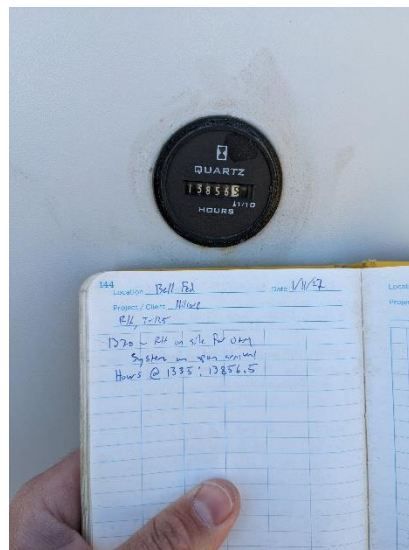 QUARTZ
138565
1/10
HOURS
144
Location Bell Fed Date
Project / Client
1320 - RH on site for O&M
System on upon arrival
Hours @ 1335: 13856.5
Locati
Projec